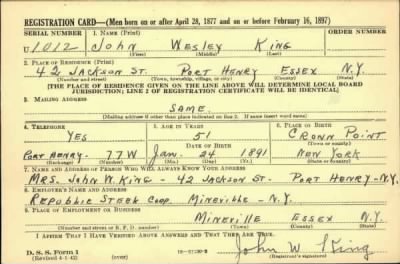 REGISTRATION CARD—(Men born on or after April 28, 1877 and on or before February 16, 1897)
SERIAL NUMBER 1. NAME (Print) ORDER NUMBER
U 1012 John Wesley King
(First) (Middle) (Last)
2. PLACE OF RESIDENCE (Print)
42 Jackson St. Port Henry Essex N.Y.
(Number and street) (Town, township, village, or city) (County) (State)
[THE PLACE OF RESIDENCE GIVEN ON THE LINE ABOVE WILL DETERMINE LOCAL BOARD
JURISDICTION; LINE 2 OF REGISTRATION CERTIFICATE WILL BE IDENTICAL]
3. MAILING ADDRESS
SAME.
[Mailing address if other than place indicated on line 2. If same insert word same]
4. TELEPHONE 5. AGE IN YEARS 6. PLACE OF BIRTH
YES 51 CROWN POINT
DATE OF BIRTH (Town or county)
PORT HENRY. 77W JAN. 24 1891 NEW YORK
(Exchange) (Number) (Mo.) (Day) (Yr.) (State or country)
7. NAME AND ADDRESS OF PERSON WHO WILL ALWAYS KNOW YOUR ADDRESS
MRS. JOHN W. KING - 42 JACKSON ST. PORT HENRY - N.Y.
8. EMPLOYER'S NAME AND ADDRESS
REPUBLIC STEEL CORP. MINEVILLE - N.Y.
9. PLACE OF EMPLOYMENT OR BUSINESS
MINEVILLE ESSEX N.Y.
(Number and street or R. F. D. number) (Town) (County) (State)
I AFFIRM THAT I HAVE VERIFIED ABOVE ANSWERS AND THAT THEY ARE TRUE.
D. S. S. Form 1
(Revised 4-1-42) (over) John W King